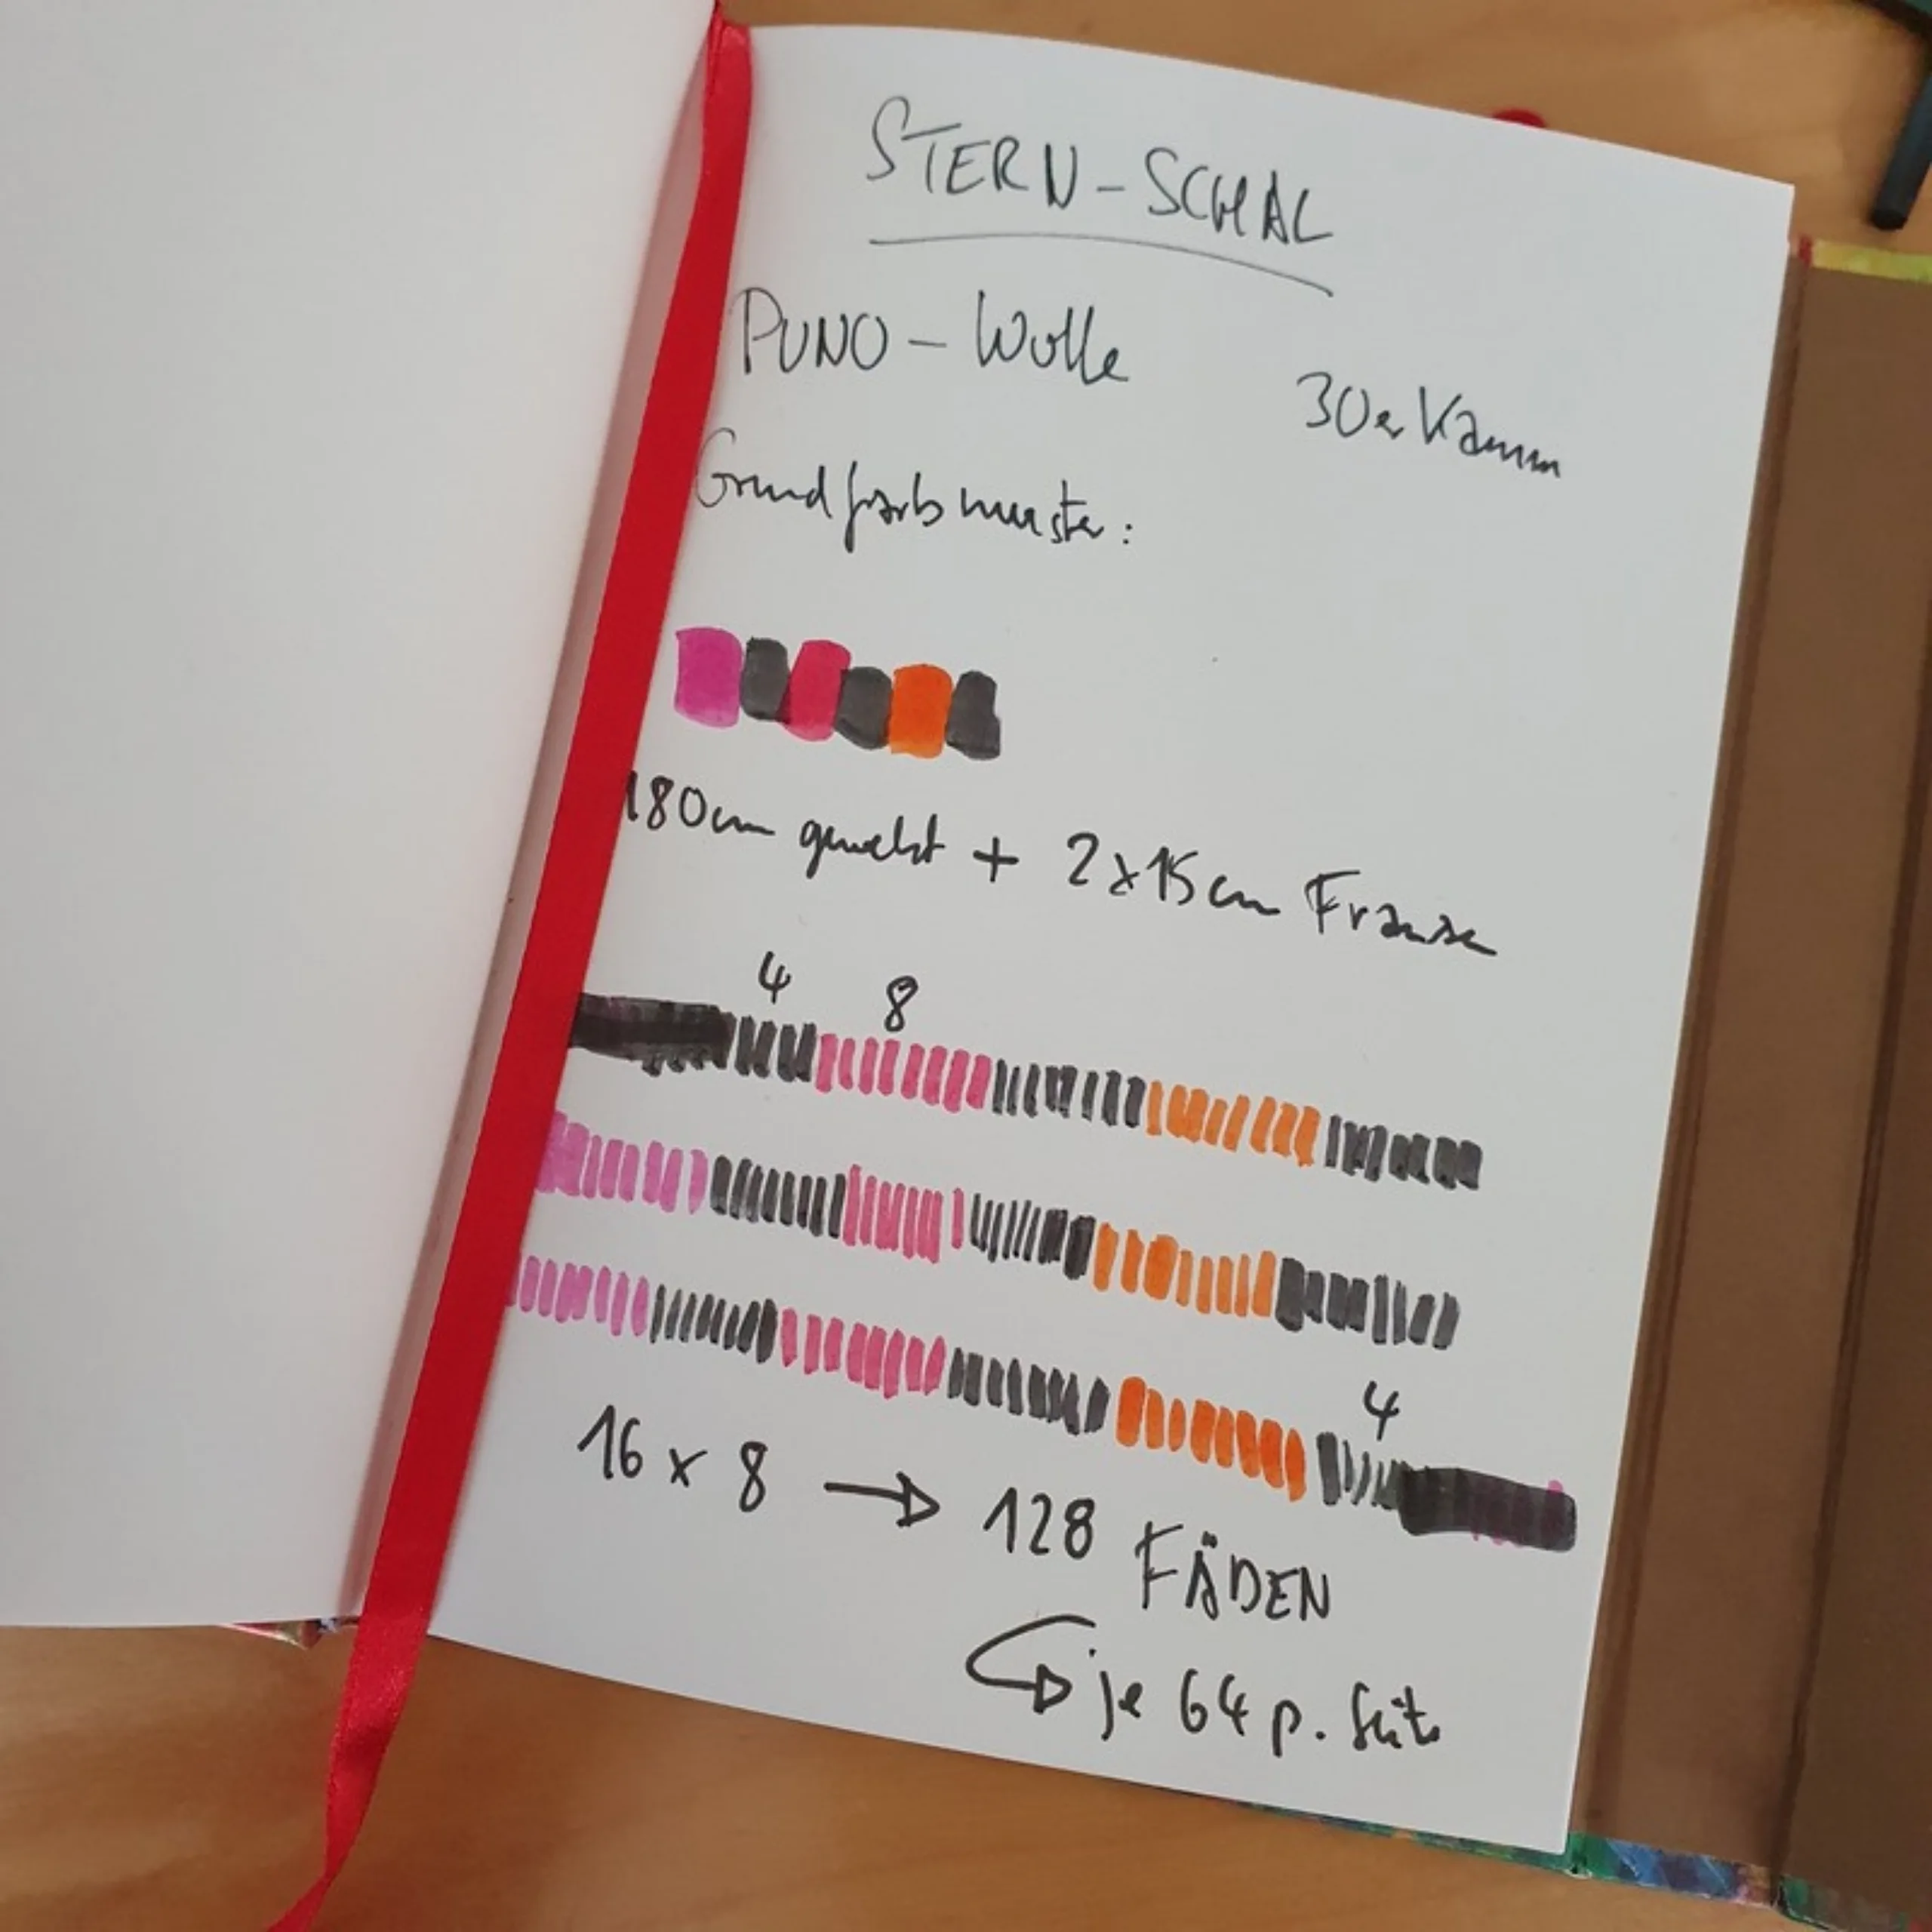 STERN-SCHAL
PUNO - Wolle
30er Kamm
Grundfarbmuster:
180cm gewebt + 2x15cm Fransen
4 8
4
16 x 8 → 128 FÄDEN
je 64 p. Seite